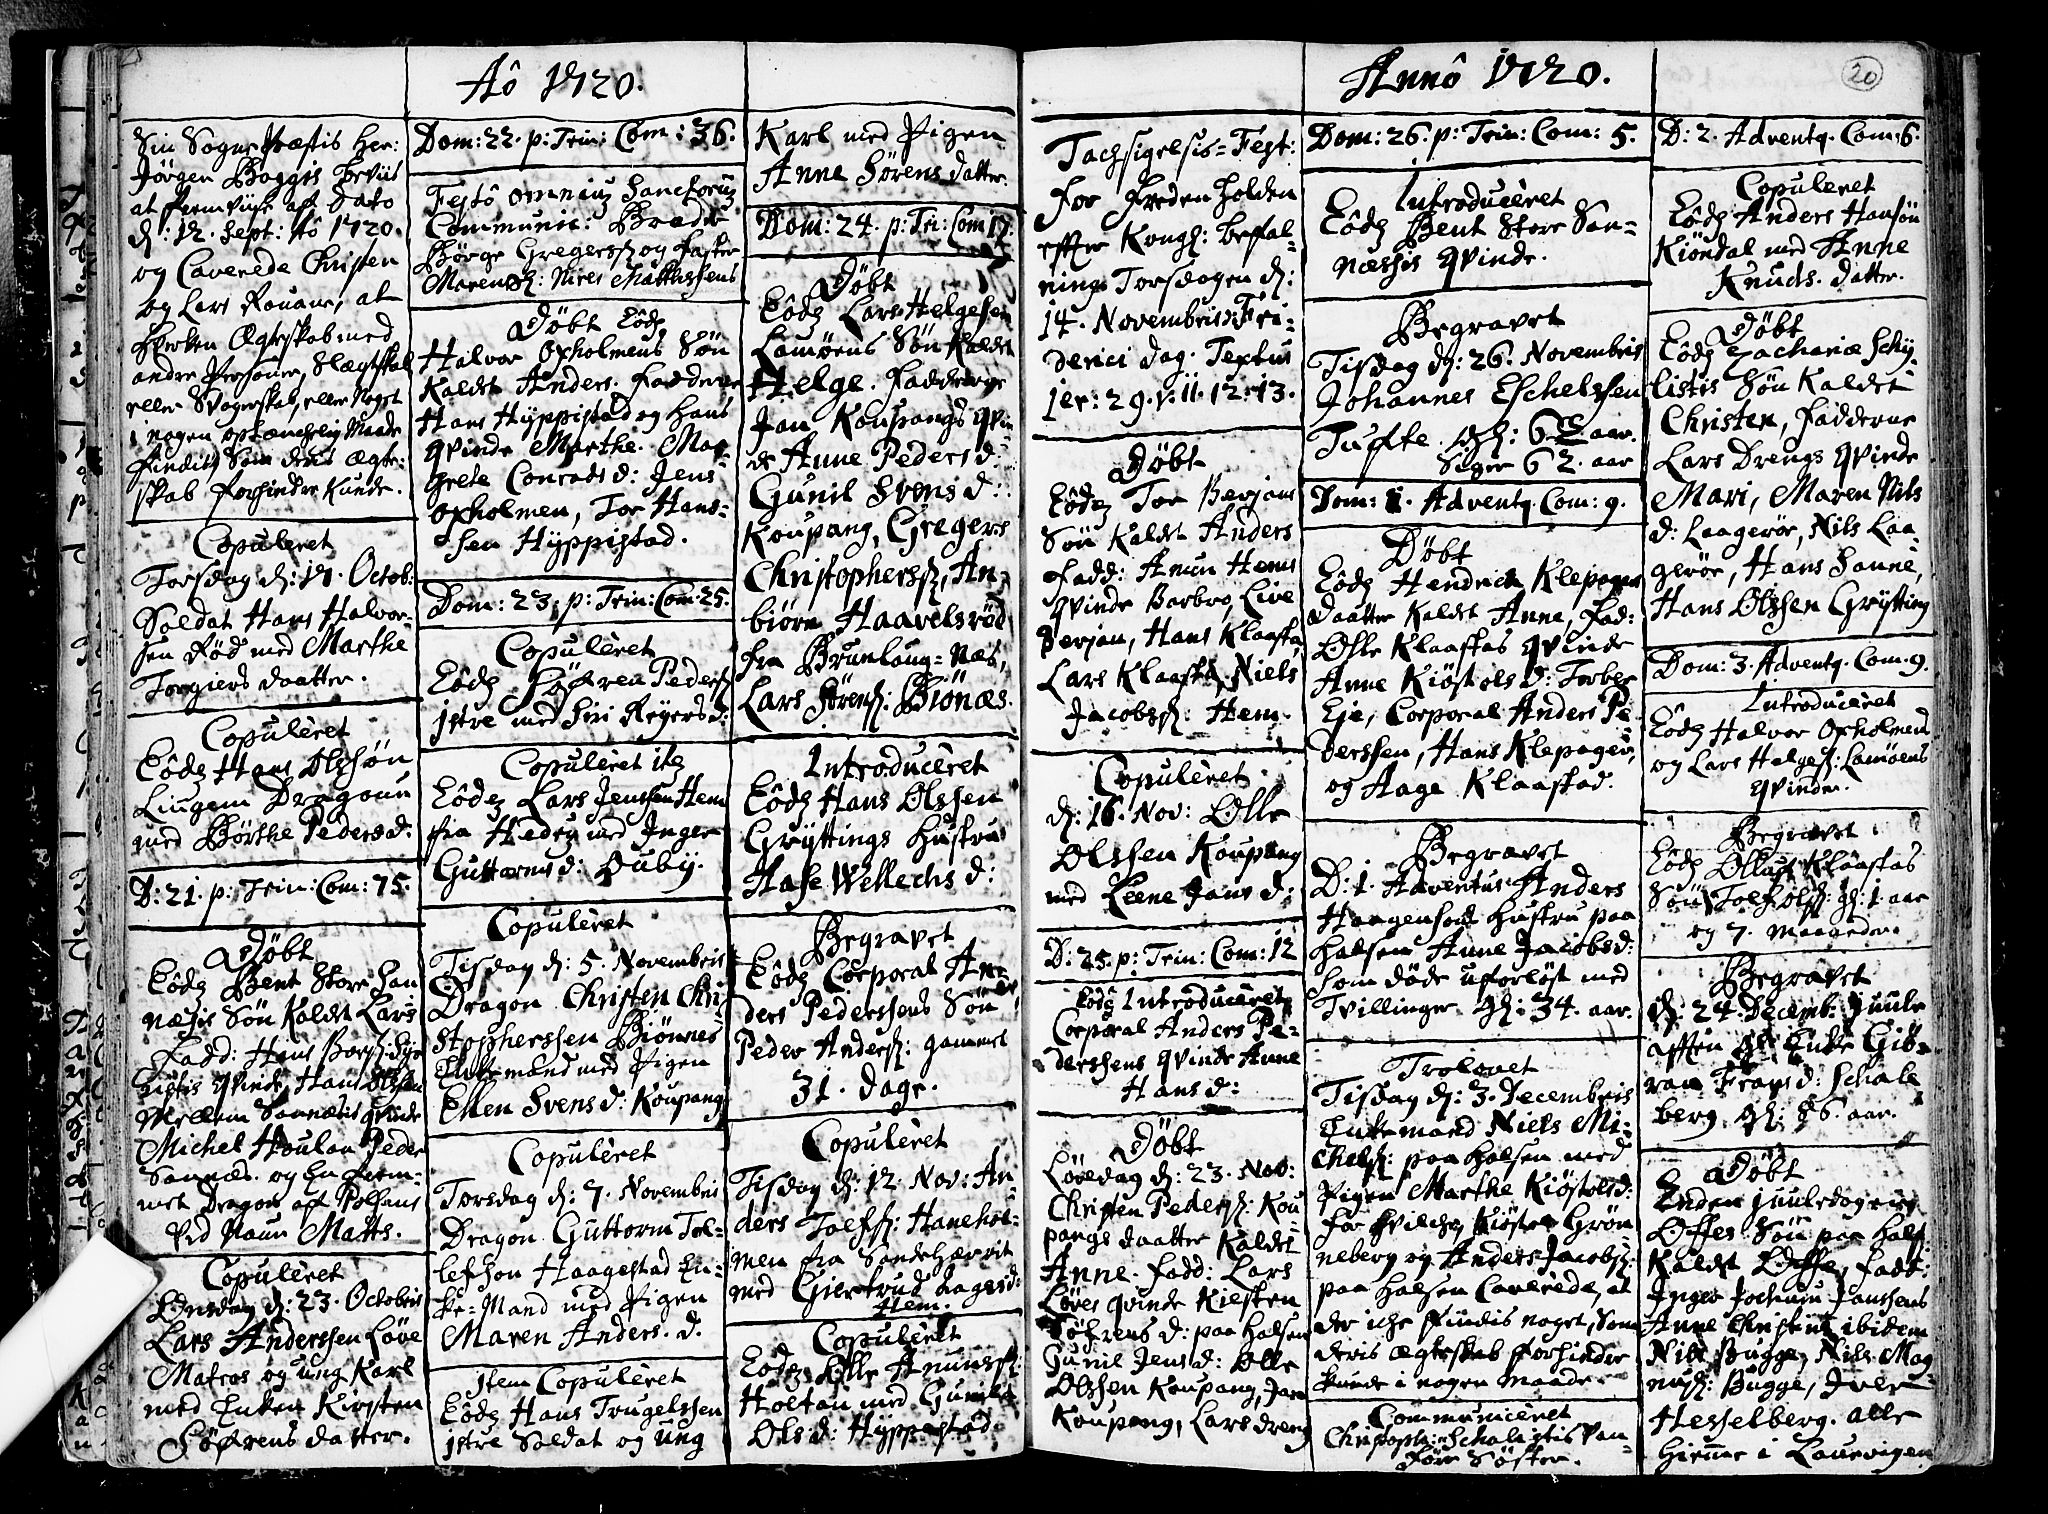 Aô 1720.
Sin Sogne Præstis Her:
Jørgen Boggis beviis
at fremviise af Dato
d: 12. Sept: Aô 1720.
og Caverede Christen
og Lars at
hverken Ægteskab med
andre Personer, Slægtskab
eller Svogerskab, eller Noget
i nogen optænckelig Maade
findis Som deris Ægte-
skab forhindre Kunde.
Copuleret
Torsdag d: 17. Octob:
Soldat Hans Halvor-
sen Rød med Marthe
Torgiers daatter.
Copulèret
Eôdẽ Hans Olssøn
Liugem Dragoun
med Børthe Peders d.
D: 21. p: Trin: Com: 75.
Døbt
Eôdẽ Bent Store San
næssis Søn Kaldet Lars
Fadd: Hans
qvinde, Hans Olssen
Mellem Sannæsis qvinde
Michel Houlan Peder
Sannæs. og En frem-
met Dragon af
ved Navn Matts.
Copulèret
Onsdag d: 23. Octobris
Lars Anderssen Løve
Matros og ung Karl
med Enken Kirsten
Søfrens datter.
Dom: 22. p: Trin: Com: 36.
Festô omniũ Sanctorũ
Communic: Baade
Børge Gregerss: og Faster
Maren Niels Matthissens
Døbt Eôdẽ
Halvor Oxholmens Søn
Kaldet Anders. Fadderne
Hans Hyppistad og hans
qvinde Marthe. Mar-
grete Conrads d: Jens
Oxholmen, Tor Hans-
sen Hyppistad.
Dom: 23. p: Trin: Com: 25.
Copulèret
Eôdẽ Søfren Peders:
Istre med Siri Reyers d:
Copulèret itẽ
Eôdẽ Lars Jenssen Hem
fra Hedrũ med Inger
Guttorms d: Ouby.
Copulèret
Tisdag d: 5. Novembris
Dragon Christen Chri-
stopherssen Biönnes
Enkemand med Pigen
Ellen Svens d: Koupang
Copulèret
Torsdag d: 7. Novembris
Dragon Guttorm Tol-
lefson Haagestad En-
ke-Mand med Pigen
Maren Anders. d.
Item Copulèret
Eôdẽ Hans Trugelssen
Istre Soldat og ung
Karl med Pigen
Anne Sørens datter.
Dom: 24. p: Tri: Com 17.
Døbt
Eôdẽ Lars Helgesen
Lamøens Søn Kaldet
Helge. Fadderne
Jan Koupangs qvin
de Anne Peders d:
Gunil Svens d:
Koupang, Gregers
Christopherss:, An-
biörn Haavelsrød
fra Brunlaug-Næs,
Lars Sörens: Biönæs.
Introducèret
Eôdẽ Hans Olssen
Grÿttings Hustru
Hase Wellechs d:
Begravet
Eôdẽ Corporal An-
ders Pederssens Søn
Peder Anderss: gammel
31. dage.
Copulèret
Tisdag d: 12. Nov: An-
ders Tolfss: Hanehol-
men fra Sandeherrit
med Giertrud Aages d:
Hem.
Copulèret
Eôdẽ Olle Amunss:
Holtan med Gunild
Ols d: Hyppestad.
Annô 1720.
20
Tachsigelsis-Fest:
For Freden holden
efter Kongs: befal-
ning Torsdagen d:
14. Novembris Fri-
derici dag. Textus
Jer: 29. v: 11. 12. 13.
Døbt
Eôdẽ Tor Berjans
Søn Kaldet Anders
Fadd: Amun Hems
qvinde Barbro, Live
Berjan, Hans Klaastad
Lars Klaasta, Niels
Jacobss: Hem.
Copulèret
d: 16. Nov: Olle
Olssen Koupang
med Leene Jans d:
D: 25. p: Trin: Com: 12
Eôdẽ Introducèret
Corporal Anders Pe-
derssens qvinde Anne
Hans d:
Døbt
Løverdag d: 23. Nov:
Christen Pederss: Kou
pangs daatter Kaldet
Anne. Fadd: Lars
Löves qvinde Kiersten
Söfrens d: paa Halsen
Gunil Jens d: Olle
Olssen Koupang, Jan
Koupang, Lars dreng
Dom: 26. p: Trin: Com: 5.
Introducèret
Eôdẽ Bent Store San-
næssis qvinde.
Begravet
Tisdag d: 26. Novembris
Johannes Eschelssen
Tufte. gl: 62 aar.
Siger 62. aar
Dom: 1. Adventq. Com: 9.
Døbt
Eôdẽ Hendrich Klepagers
daatter Kaldet Anne, Fad:
Olle Klaastas qvinde
Anne Kiöstols d: Torber
Eje, Corporal Anders Pe-
derssen, Hans Klepager,
og Aage Klaastad.
Begravet
D: 1. Adventus Anders
Haagensøns Hustru paa
Halsen Anne Jacobs d:
Som døde uforløst med
Tvillinger. gl: 34. aar
Trolovet
Tisdag d: 3. Decembris
Enkemand Niels Mi-
chels: paa Halsen med
Pigen Marthe Kiöstols d:
for hvilche Kiöstel Grön
neberg og Anders Jacobs:
paa Halsen Caverede, at
der iche findis noget, Som
deris Ægteskab forhindre
Kunde i nogen maade
Communicèret
Christopher Schalistis Van-
før Søster.
D: 2. Adventq. Com: 6.
Copuleret
Eôdẽ Anders Hansøn
Kiöndal med Anne
Knuds. datter.
Døbt
Eôdẽ Zachariæ Schÿ
listis Søn Kaldet
Christen, Fadderne
Lars Drengs qvinde
Mari, Maren Nils
d: Laagerör, Nils Laa-
gerör, Hans Sanne,
Hans Olssen Grÿtting
Dom: 3. Adventq. Com. 9.
Introduceret
Eôdẽ Halvor Oxholmens
og Lars Helges: Lamøens
qvinder.
Begravet
Eôdẽ Olluf Klaastas
Søn Tolf Ols: gl: 1. aar
og 7. Maaneder.
Begravet
d: 24. Decemb: Juule
afften Enke Giö-
ran Frans d: Schale
berg gl: 86. aar.
Døbt
Anden juuledag
Offes Søn paa Hals:
Kaldet Offe, Fadd:
Inger Jochum Janssens
Anne Christens ibidem
Nils Bugge, Nils Mag-
nus: Bugge, Iver
Hesselberg. alle
hiemme i Laurvigen